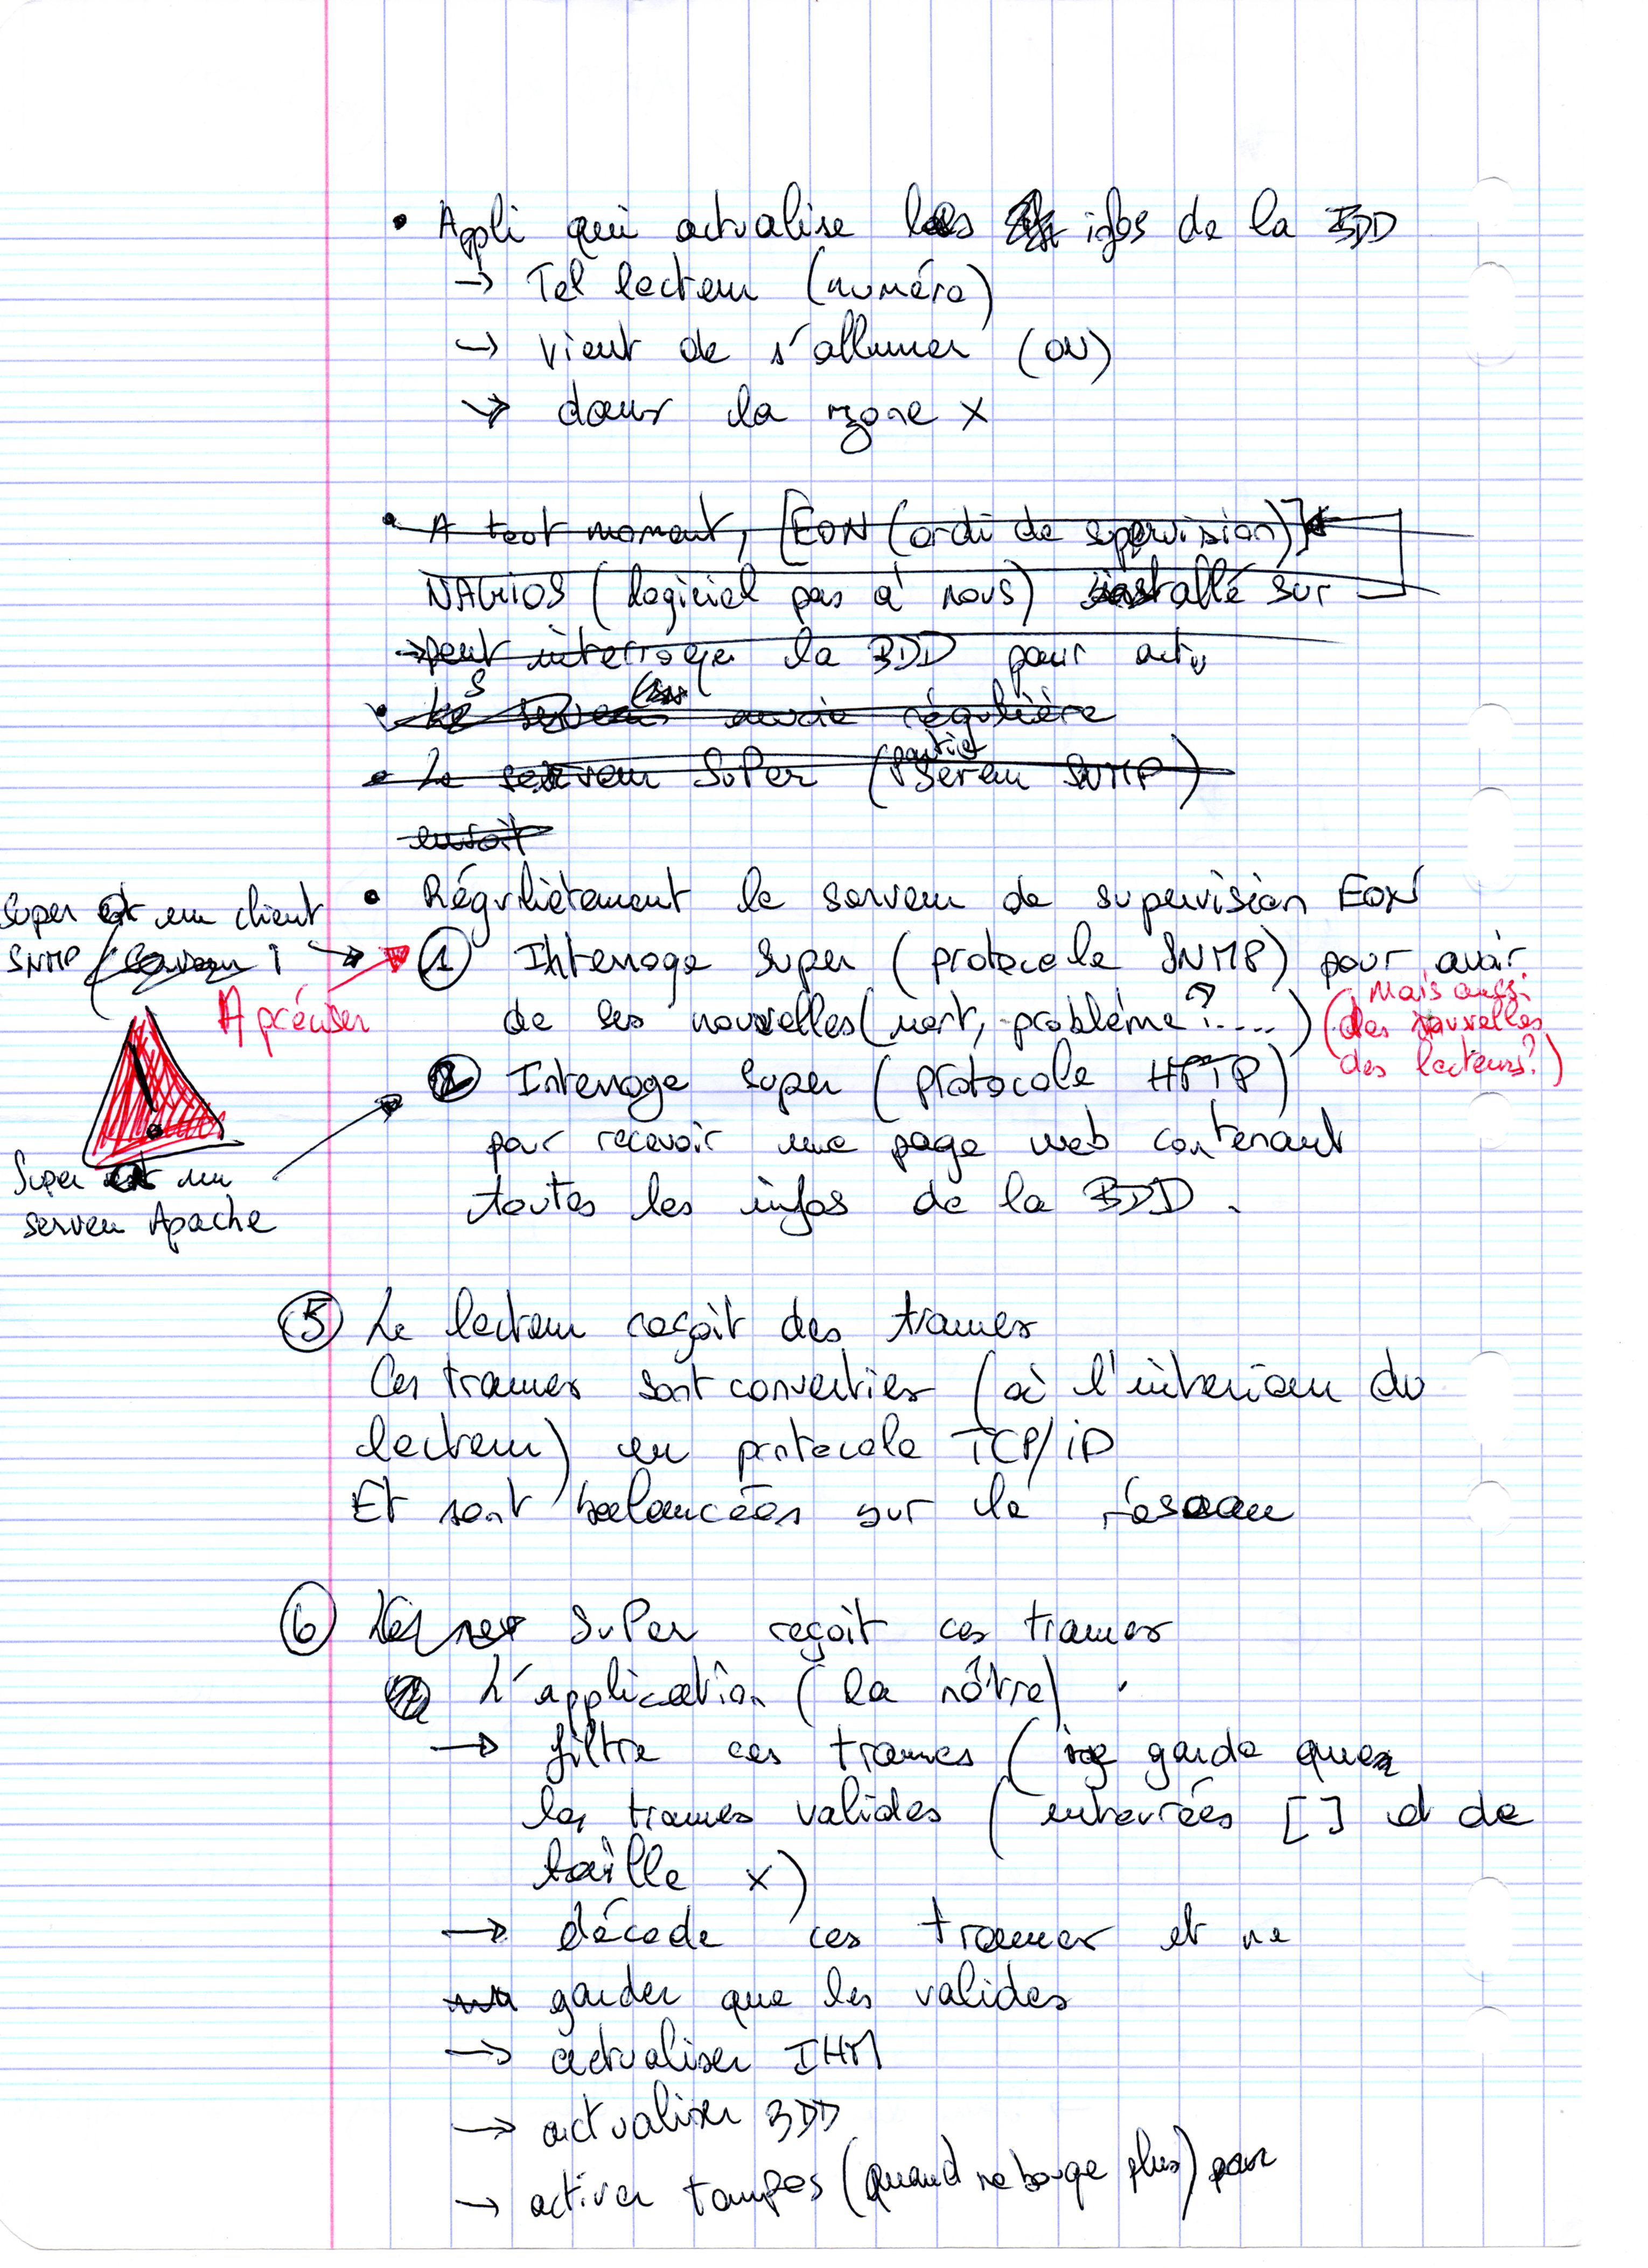 • Appli qui actualise les infos de la BDD
→ Tel lecteur (numéro)
→ vient de s'allumer (ON)
→ dans la zone X
• A tout moment, [EON (ordi de supervision)]
NAGIOS (logiciel pas à nous) installé sur
→ peut interroge la BDD pour actu
envoie régulière
• Le serveur SuPer (partie serveur SNMP)
envoit
• Régulièrement le serveur de supervision EON
Super est un client
SNMP
① Interroge Super (protocole SNMP) pour avoir
A préciser
de ses nouvelles (mort, problème ?....) (Mais aussi
des nouvelles
des lecteurs?)
② Interroge Super (protocole HTTP)
pour recevoir une page web contenant
toutes les infos de la BDD.
!
Super est un
serveur Apache
⑤ Le lecteur reçoit des trames
Ces trames sont converties (à l'intérieur du
lecteur) en protocole TCP/IP
Et sont balancées sur le réseau
⑥ SuPer reçoit ces trames
L'application (la nôtre)
→ filtre ces trames (ne garde que
les trames valides (entourées [] et de
taille X)
→ décode ces trames et ne
garder que les valides
→ actualiser IHM
→ actualiser BDD
→ activer tempos (quand ne bouge plus) pour